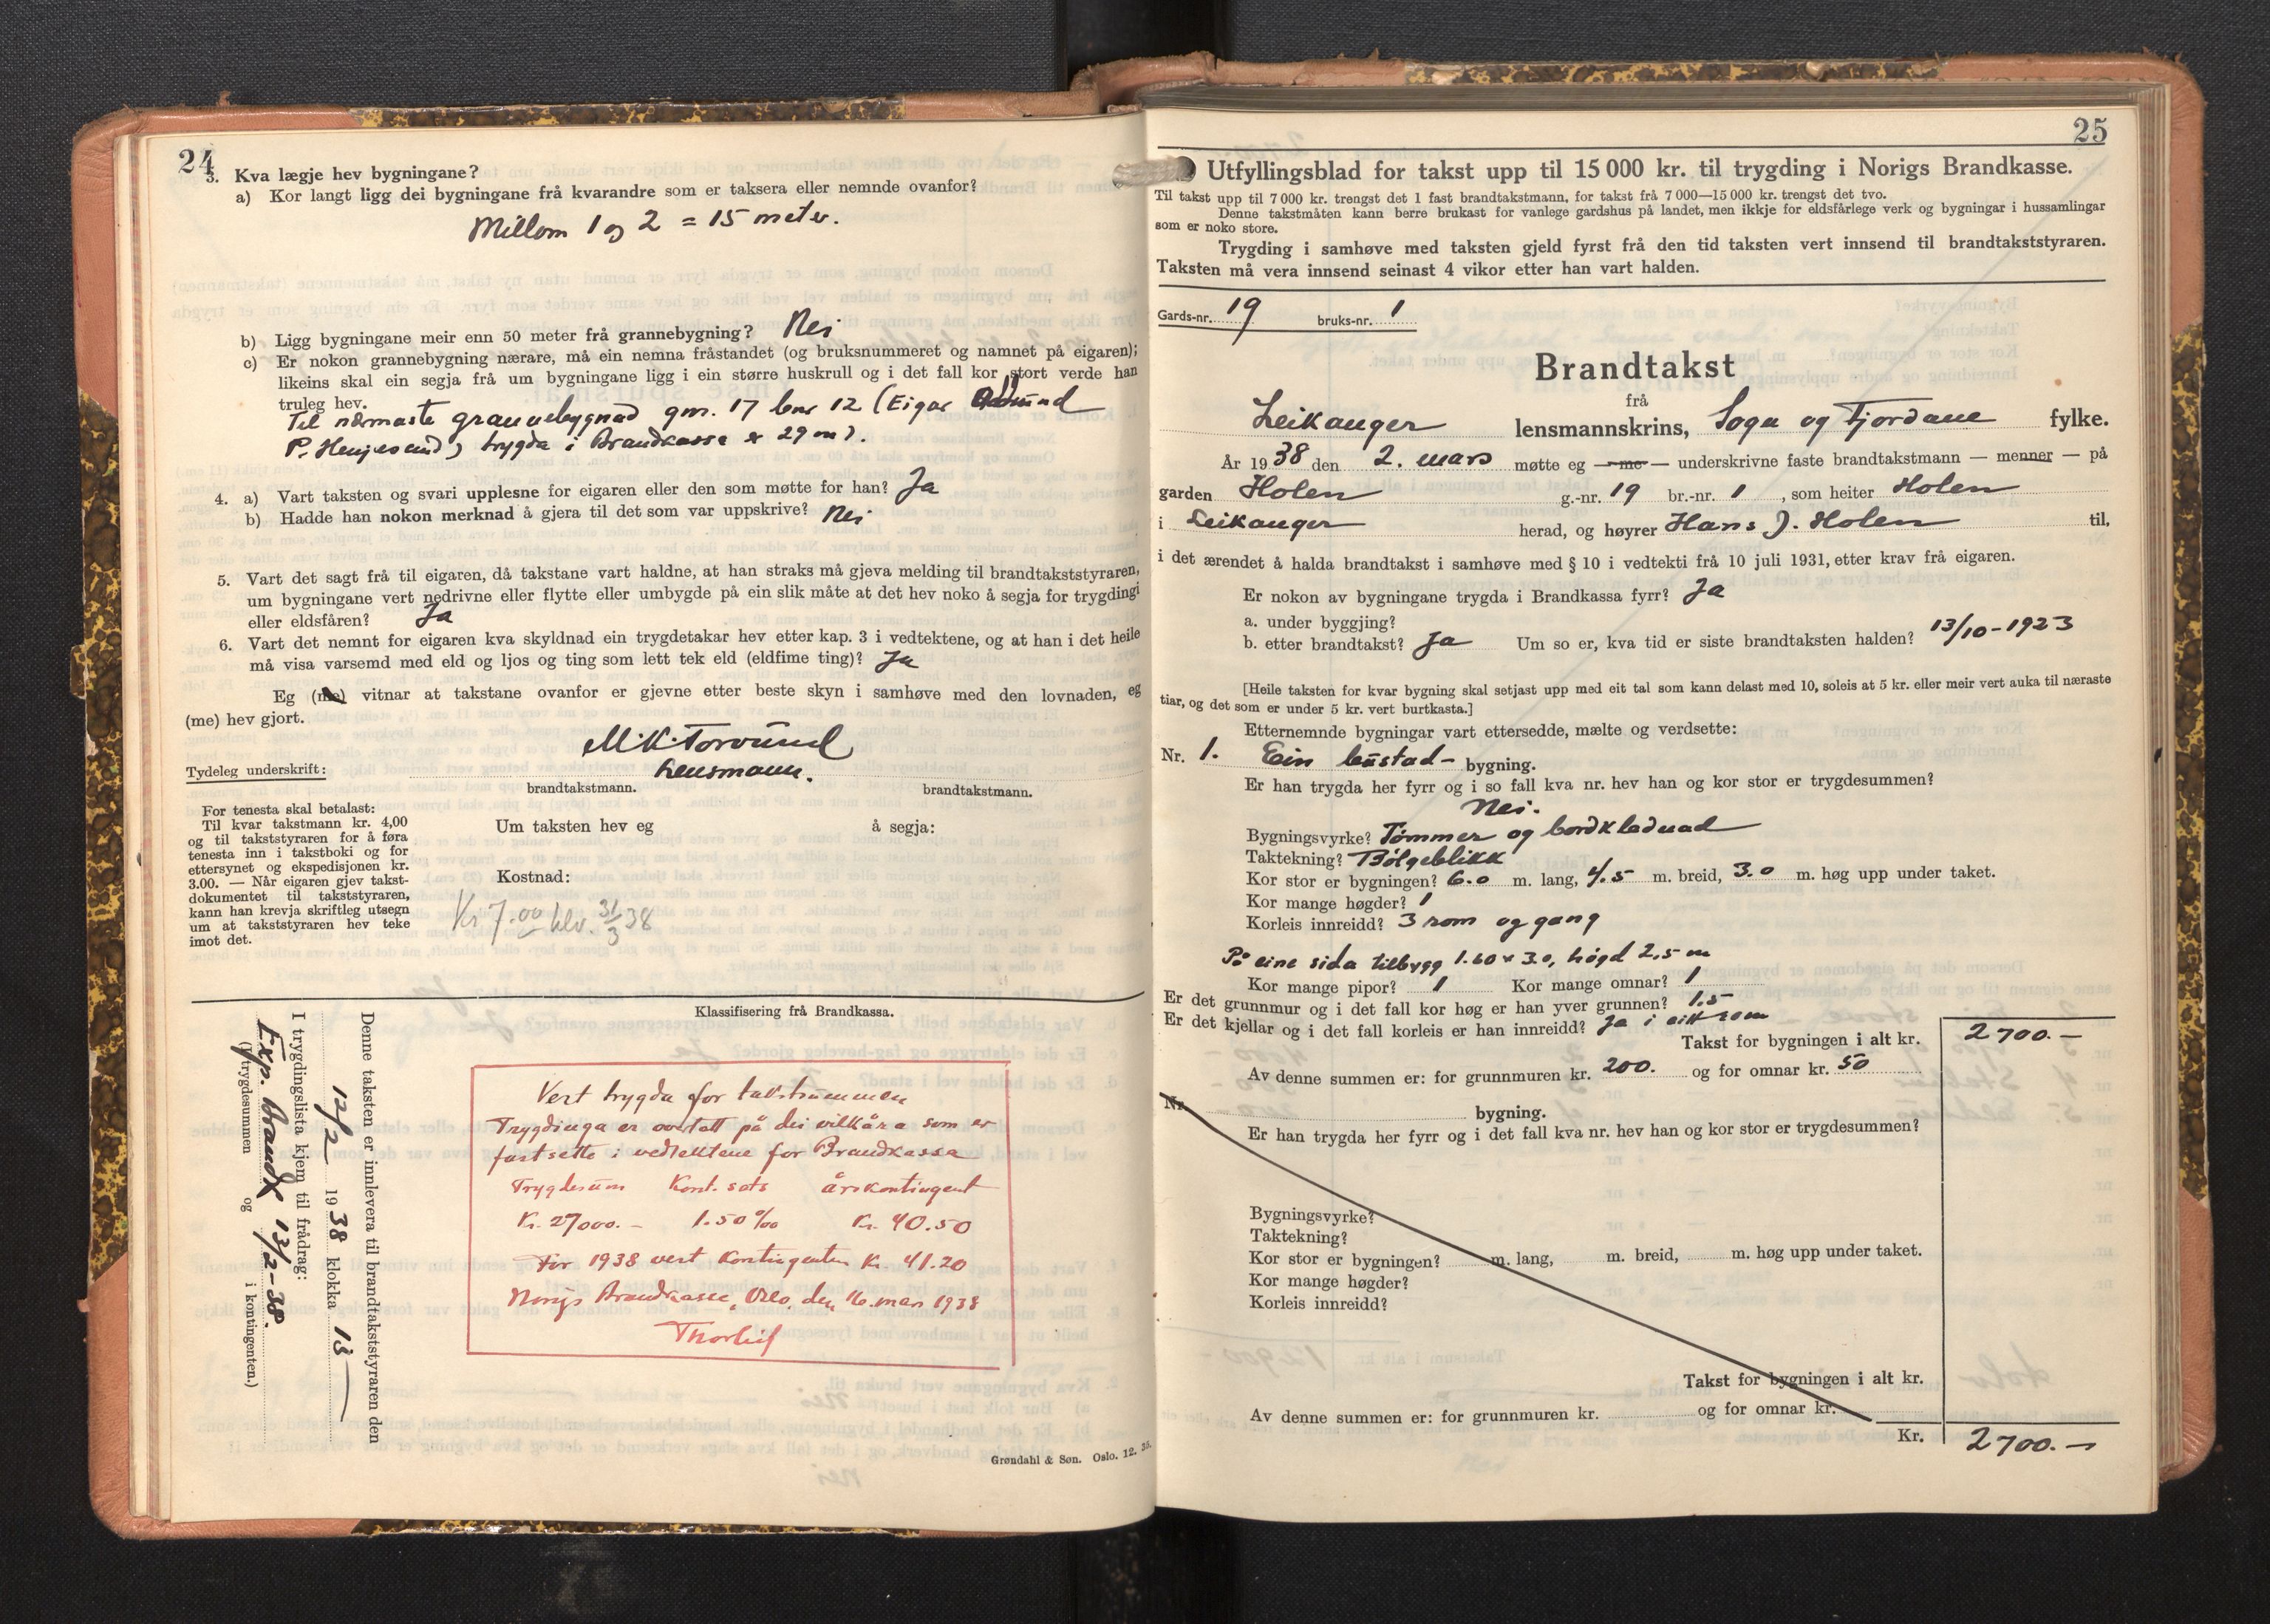 24
3. Kva lægje hev bygningane?
a) Kor langt ligg dei bygningane frå kvarandre som er taksera eller nemnde ovanfor?
Millom 1 og 2 = 15 meter.
b) Ligg bygningane meir enn 50 meter frå grannebygning? Nei
c) Er nokon grannebygning nærare, må ein nemna fråstandet (og bruksnummeret og namnet på eigaren);
likeins skal ein segja frå um bygningane ligg i ein større huskrull og i det fall kor stort verde han
truleg hev.
Til nærmaste grannebygnad gnr. 17 bnr 12 (Eigar
P. Henjesand) trygda i Brandkassa er 29 m).
4. a) Vart taksten og svari upplesne for eigaren eller den som møtte for han? Ja
b) Hadde han nokon merknad å gjera til det som var uppskrive? Nei
5. Vart det sagt frå til eigaren, då takstane vart haldne, at han straks må gjeva melding til brandtakststyraren,
um bygningane vert nedrivne eller flytte eller umbygde på ein slik måte at det hev noko å segja for trygdingi
eller eldsfåren? Ja
6. Vart det nemnt for eigaren kva skyldnad ein trygdetakar hev etter kap. 3 i vedtektene, og at han i det heile
må visa varsemd med eld og ljos og ting som lett tek eld (eldfime ting)? Ja
Eg (me) vitnar at takstane ovanfor er gjevne etter beste skyn i samhøve med den lovnaden, eg
(me) hev gjort.
M.K. Torvund
Tydeleg underskrift: Lensmann.
brandtakstmann. brandtakstmann.
For tenesta skal betalast:
Til kvar takstmann kr. 4,00
og til takststyraren for å føra
tenesta inn i takstboki og for
ettersynet og ekspedisjonen kr.
3.00. — Når eigaren gjev takst-
dokumentet til takststyraren,
kann han krevja skriftleg utsegn
um at takststyraren hev teke
imot det.
Um taksten hev eg å segja:
Kostnad:
Kr 7.00 blv. 31/3 38
Klassifisering frå Brandkassa.
Denne taksten er innlevera til brandtakststyraren den
12/2 1938 klokka 13
I trygdingslista kjem til frådrag:
Exp. Brandk 13/2-38.
(i trygdesummen og i kontingenten.)
Vert trygda for takstsummen
Trygdinga er avslutt på dei vilkåra som er
fastsette i vedtektene for Brandkassa
Trygdesum Kont. sats årskontingent
Kr. 27000.- 1.50 ‰ Kr. 40.50
For 1938 vert kontingenten Kr. 41.20
Norigs Brandkasse, Oslo, den 16. mars 1938
Grøndahl & Søn. Oslo. 12. 35.
25
Utfyllingsblad for takst upp til 15 000 kr. til trygding i Norigs Brandkasse.
Til takst upp til 7 000 kr. trengst det 1 fast brandtakstmann, for takst frå 7 000—15 000 kr. trengst det tvo.
Denne takstmåten kann berre brukast for vanlege gardshus på landet, men ikkje for eldsfårlege verk og bygningar i hussamlingar
som er noko store.
Trygding i samhøve med taksten gjeld fyrst frå den tid taksten vert innsend til brandtakststyraren.
Taksten må vera innsend seinast 4 vikor etter han vart halden.
Gards-nr. 19 bruks-nr. 1
Brandtakst
frå
Leikanger lensmannskrins, Sogn og Fjordane fylke.
År 1938 den 2. mars møtte eg — me — underskrivne faste brandtakstmann — menner — på
garden Holen g.-nr. 19 br.-nr. 1, som heiter Holen
i Leikanger herad, og høyrer Hans J. Holen til,
i det ærendet å halda brandtakst i samhøve med § 10 i vedtekti frå 10 juli 1931, etter krav frå eigaren.
Er nokon av bygningane trygda i Brandkassa fyrr? Ja
a. under byggjing?
b. etter brandtakst? Ja Um so er, kva tid er siste brandtaksten halden? 13/10-1923
[Heile taksten for kvar bygning skal setjast upp med eit tal som kann delast med 10, soleis at 5 kr. eller meir vert auka til næraste
tiar, og det som er under 5 kr. vert burtkasta.]
Etternemnde bygningar vart ettersedde, mælte og verdsette:
Nr. 1. Ein bustad- bygning.
Er han trygda her fyrr og i so fall kva nr. hev han og kor stor er trygdesummen?
Nei.
Bygningsvyrke? Tømmer og bordkladnad
Taktekning? Bølgeblikk
Kor stor er bygningen? 6.0 m. lang, 4.5 m. breid, 3.0 m. høg upp under taket.
Kor mange høgder? 1
Korleis innreidd? 3 rom og gang
På eine sida tilbygg 1.60 x 3.0, høgd 2.5 m
Kor mange pipor? 1 Kor mange omnar? 1
Er det grunnmur og i det fall kor høg er han yver grunnen? 1.5
Er det kjellar og i det fall korleis er han innreidd? Ja i eitt rom
Takst for bygningen i alt kr. 2700.—
Av denne summen er: for grunnmuren kr. 200. og for omnar kr. 50
Nr. bygning.
Er han trygda her fyrr og i det fall kva nr. hev han og kor stor er trygdesummen?
Bygningsvyrke?
Taktekning?
Kor stor er bygningen? m. lang, m. breid, m. høg upp under taket.
Kor mange høgder?
Korleis innreidd?
Takst for bygningen i alt kr.
Av denne summen er: for grunnmuren kr. og for omnar kr.
Kr. 2700.—